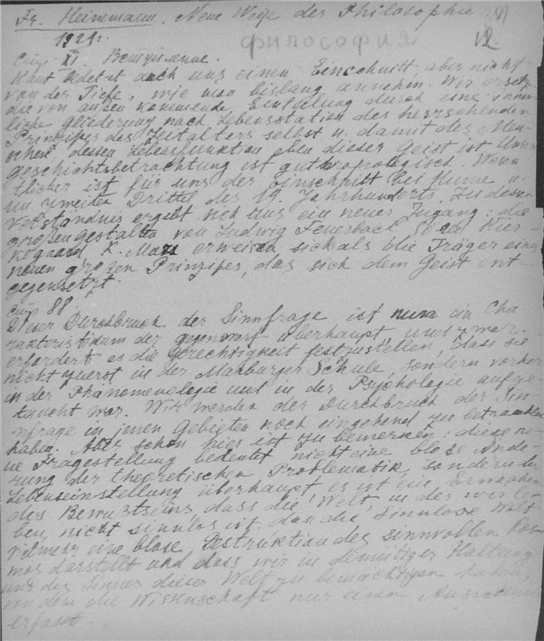 Fr. Heinemann. Neue Wege der Philosophie
1929.
философия
стр. XI. Вступление.
Kant bildet auch uns einen Einschnitt, aber nicht
von der Tiefe, wie man bislang annahm. Wir ersetz
die von außen kommende Einteilung durch eine inner
liche Gliederung nach Lebensstation des herrschenden
Prinzipes des Zeitalters selbst u. damit des Men
schen, dessen Lebensfunktion eben dieser Geist ist. Unsere
geschichtsbetrachtung ist anthropologisch. Wenn
für uns der Einschnitt bei Hume u.
im zweiten Drittel des 19. Jahrhunderts. Zu deren
Verständnis ergibt sich uns ein neuer Zugang: die
großen gestalten von Ludwig Feuerbach, Sören Kier-
kegaard, K. Marx erweisen sich als die Träger eines
neuen großen Prinzipes, das sich dem Geist ent
gegensetzt.
стр. 88.
Dieser Durchbruch der Sinnfrage ist nun ein Cha
rakteristikum der gegenwart überhaupt, und zwar
erfordert es die Gerechtigkeit festzustellen, dass sie
nicht zuerst in der Marburger Schule, sondern vorher
in der Phänomenologie und in der Psychologie aufge-
taucht war. Wir werden der Durchbruch der Sin
nfrage in jenen Gebieten noch eingehend zu betrachten
haben. Aber schon hier ist zu bemerken: diese ne
ue Fragestellung bedeutet nicht eine bloße Ände
rung der theoretischen Problematik, sondern der
Lebenseinstellung überhaupt, es ist ein Erwachen
des Bewusstseins, dass die Welt, in der wir le-
ben, nicht sinnlos ist, das die sinnlose Welt
vielmehr eine blose Destruktion des sinnvollen Kos
mos darstellt und, dass wir in demütiger Haltung
uns des Sinnes dieser Welt zu bemächtigen haben,
von dem die Wissenschaft nur einen Ausschnitt
erfasst.